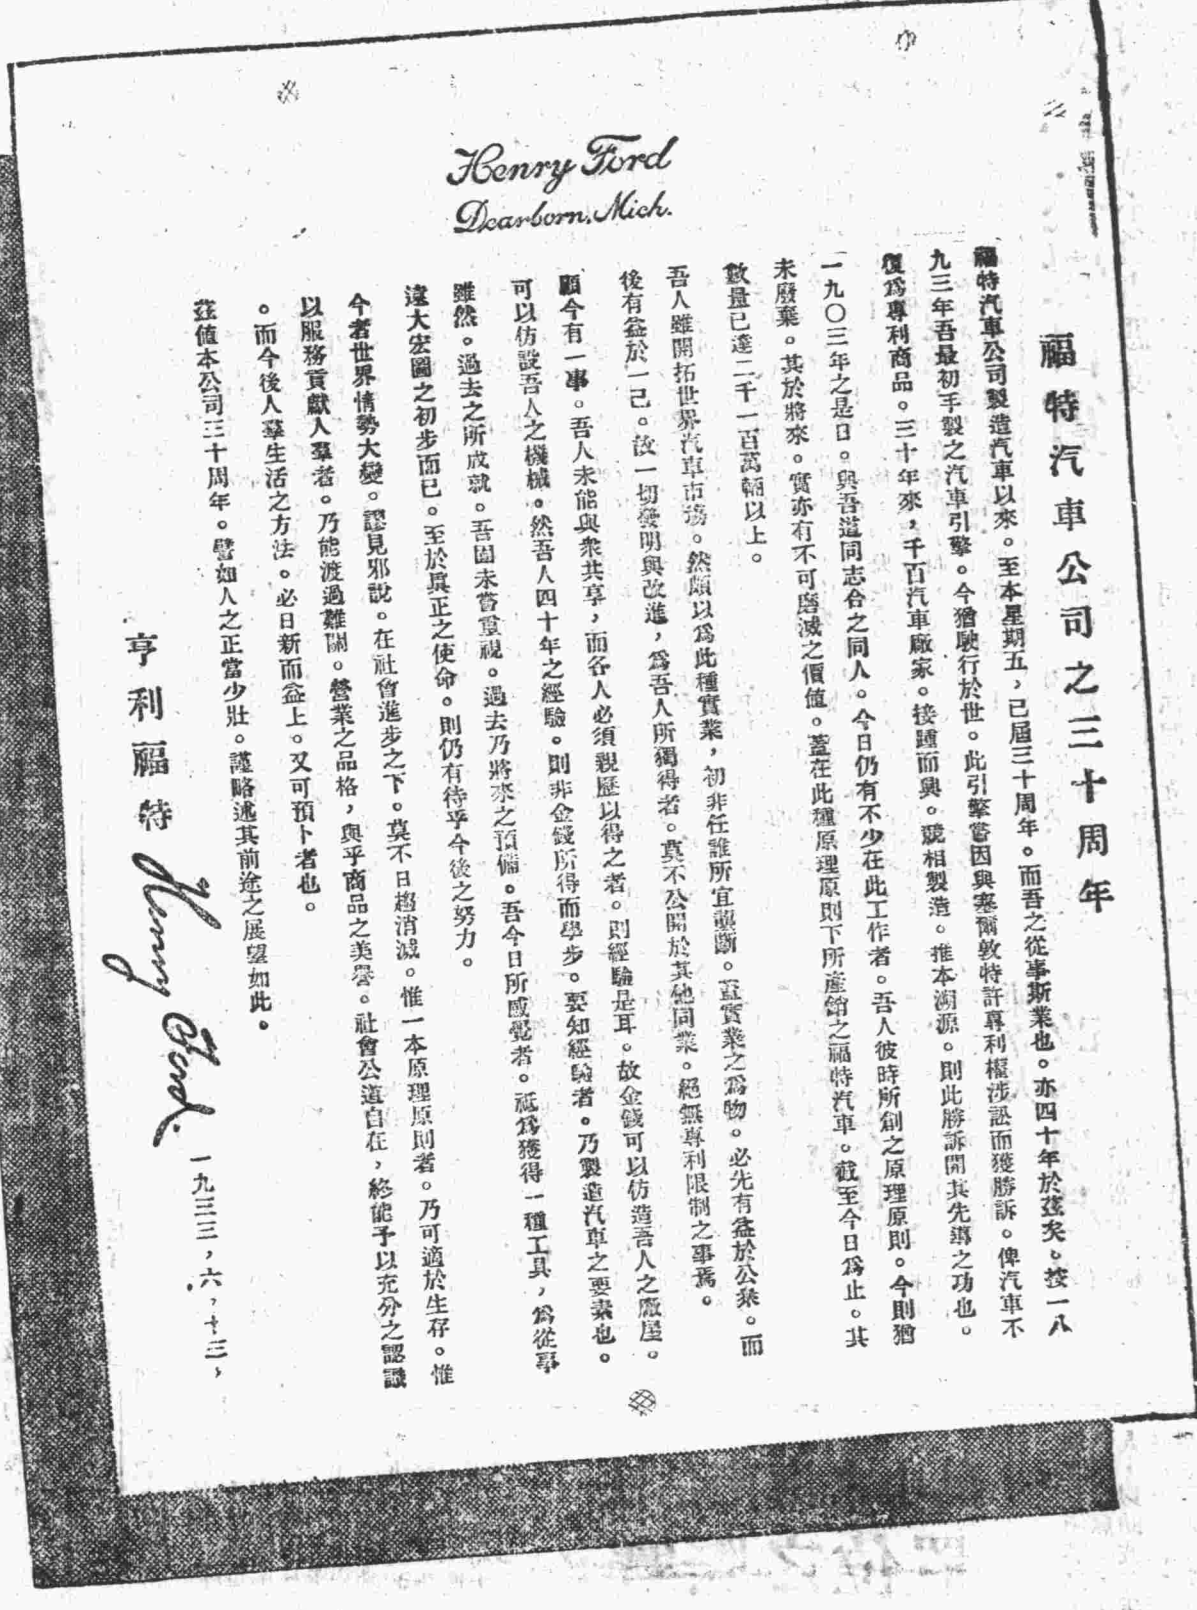 Henry Ford
Dearborn, Mich.
福特汽車公司之三十周年
福特汽車公司製造汽車以來。至本星期五，已屆三十周年。而吾之從事斯業也。亦四十年於茲矣。按一八
九三年吾最初手製之汽車引擎。今猶駛行於世。此引擎嘗因與塞爾敦特許專利權涉訟而獲勝訴。俾汽車不
復爲專利商品。三十年來，千百汽車廠家。接踵而興。競相製造。推本溯源。則此勝訴開其先導之功也。
一九〇三年之是日。與吾道同志合之同人。今日仍有不少在此工作者。吾人彼時所創之原理原則。今則猶
未廢棄。其於將來。實亦有不可磨滅之價值。蓋在此種原理原則下所產銷之福特汽車。截至今日爲止。其
數量已達二千一百萬輛以上。
吾人雖開拓世界汽車市場。然頗以爲此種實業，初非任誰所宜壟斷。蓋實業之爲物。必先有益於公衆。而
後有益於一己。故一切發明與改進，爲吾人所獨得者。莫不公開於其他同業。絕無專利限制之事焉。
顧今有一事。吾人未能與衆共享，而各人必須親歷以得之者。則經驗是耳。故金錢可以仿造吾人之廠屋。
可以仿設吾人之機械。然吾人四十年之經驗。則非金錢所得而學步。要知經驗者。乃製造汽車之要素也。
雖然。過去之所成就。吾固未嘗重視。過去乃將來之預備。吾今日所感覺者。祗爲獲得一種工具，爲從事
遠大宏圖之初步而已。至於眞正之使命。則仍有待乎今後之努力。
今者世界情勢大變。謬見邪說。在社會進步之下。莫不日趨消滅。惟一本原理原則者。乃可適於生存。惟
以服務貢獻人羣者。乃能渡過難關。營業之品格，與乎商品之美譽。社會公道自在，終能予以充分之認識
。而今後人羣生活之方法。必日新而益上。又可預卜者也。
茲值本公司三十周年。譬如人之正當少壯。謹略述其前途之展望如此。
亨利福特 Henry Ford. 一九三三，六，十三，